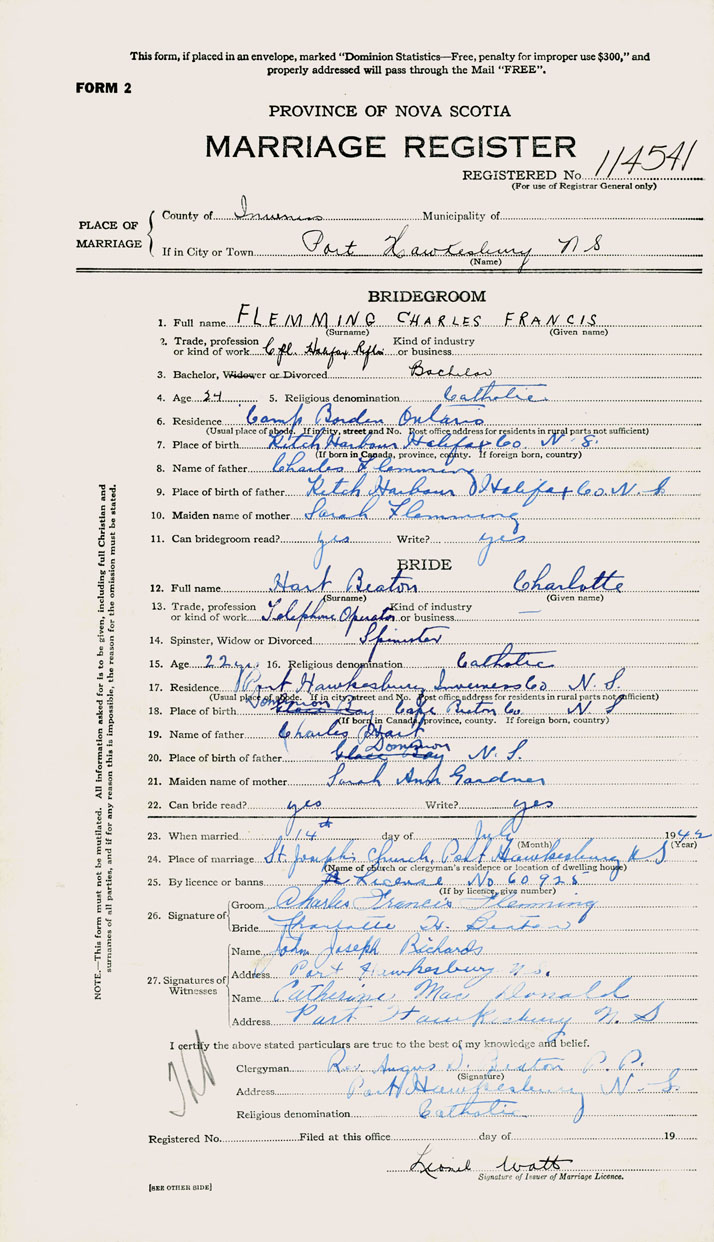 This form, if placed in an envelope, marked "Dominion Statistics—Free, penalty for improper use $300," and
properly addressed will pass through the Mail "FREE".
FORM 2
PROVINCE OF NOVA SCOTIA
MARRIAGE REGISTER
REGISTERED No. 114541
(For use of Registrar General only)
PLACE OF MARRIAGE
County of Inverness Municipality of
If in City or Town Port Hawkesbury N S
(Name)
BRIDEGROOM
1. Full name FLEMMING CHARLES FRANCIS
(Surname) (Given name)
2. Trade, profession or kind of work Cpl. Halifax Rifles Kind of industry or business
3. Bachelor, Widower or Divorced Bachelor
4. Age 24 5. Religious denomination Catholic
6. Residence Camp Borden Ontario
(Usual place of abode. If in city, street and No. Post office address for residents in rural parts not sufficient)
7. Place of birth Ketch Harbour Halifax Co. N. S.
(If born in Canada, province, county. If foreign born, country)
8. Name of father Charles Flemming
9. Place of birth of father Ketch Harbour Halifax Co. N. S
10. Maiden name of mother Sarah Flemming
11. Can bridegroom read? yes Write? yes
BRIDE
12. Full name Hart Beaton Charlotte
(Surname) (Given name)
13. Trade, profession or kind of work Telephone Operator Kind of industry or business —
14. Spinster, Widow or Divorced Spinster
15. Age 22 yrs. 16. Religious denomination Catholic
17. Residence Port Hawkesbury Inverness Co N. S.
(Usual place of abode. If in city street and No. Post office address for residents in rural parts not sufficient)
18. Place of birth Dominion Glace Bay Cape Breton Co. N S
(If born in Canada, province, county. If foreign born, country)
19. Name of father Charles Hart
20. Place of birth of father Glace Bay Dominion N. S.
21. Maiden name of mother Sarah Ann Gardner
22. Can bride read? yes Write? yes
23. When married 14th day of July 1942
(Month) (Year)
24. Place of marriage St. Joseph's Church, Port Hawkesbury N S
(Name of church or clergyman's residence or location of dwelling house)
25. By licence or banns License No 60928
(If by licence, give number)
26. Signature of
Groom Charles Francis Flemming
Bride Charlotte H. Beaton
27. Signatures of Witnesses
Name John Joseph Richards
Address Port Hawkesbury N.S.
Name Catherine MacDonald
Address Port Hawkesbury N. S
I certify the above stated particulars are true to the best of my knowledge and belief.
Clergyman Rev. Angus D. Beaton P. P.
(Signature)
Address Port Hawkesbury N. S.
Religious denomination Catholic
Registered No. Filed at this office day of 19
Lionel Watt
Signature of Issuer of Marriage Licence.
[SEE OTHER SIDE]
NOTE.—This form must not be mutilated. All information asked for is to be given, including full Christian and
surnames of all parties, and if for any reason this is impossible, the reason for the omission must be stated.